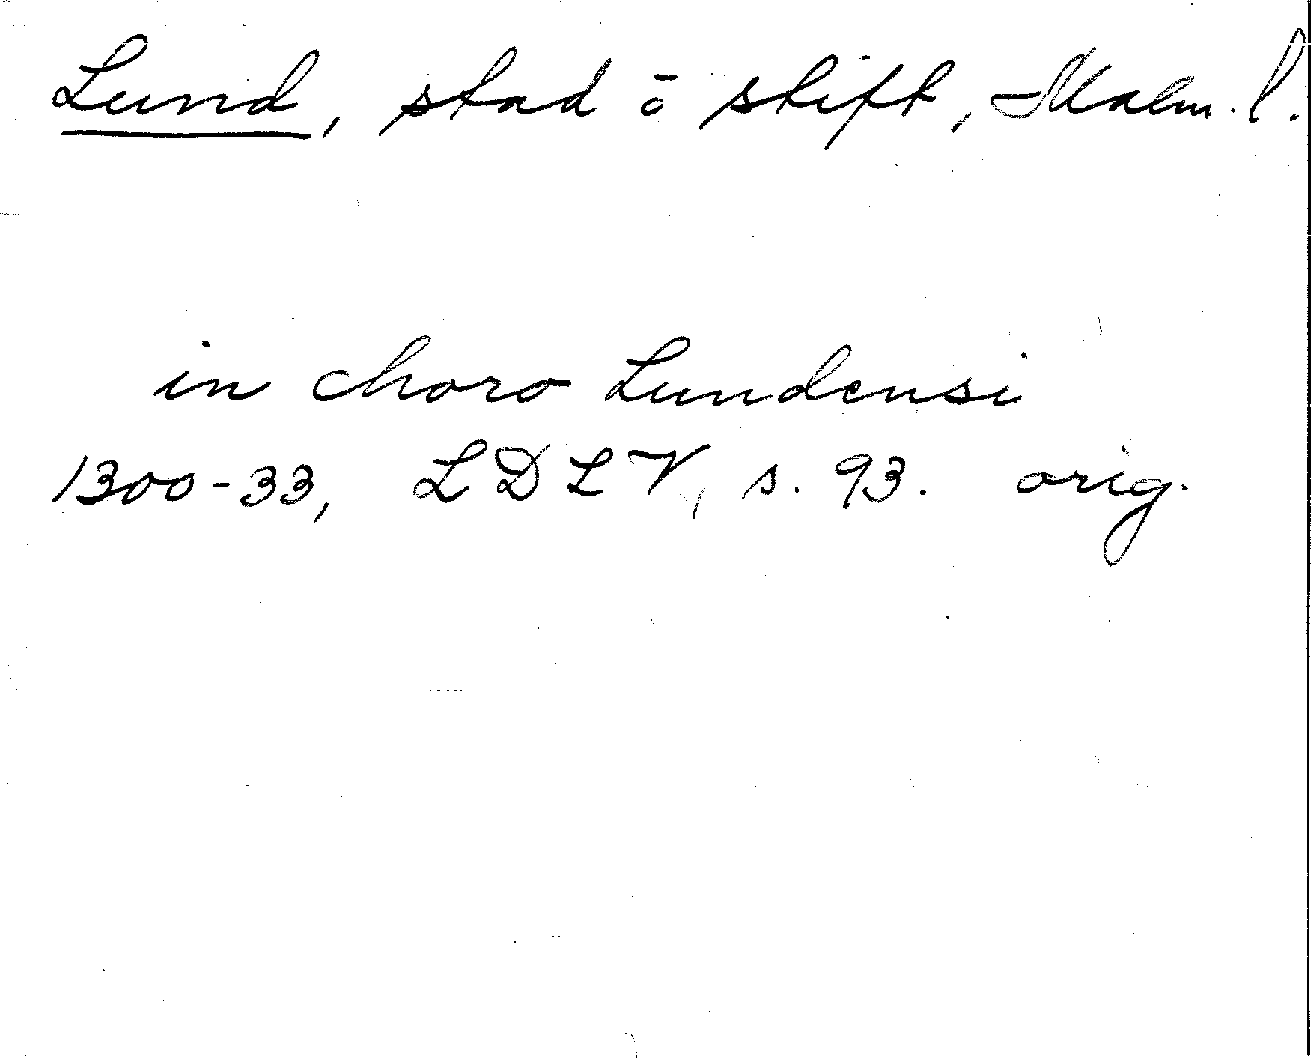 Lund, stad ō stift, Malm. l.
in choro Lundensi
1300-33, LDLV, s. 93. orig.